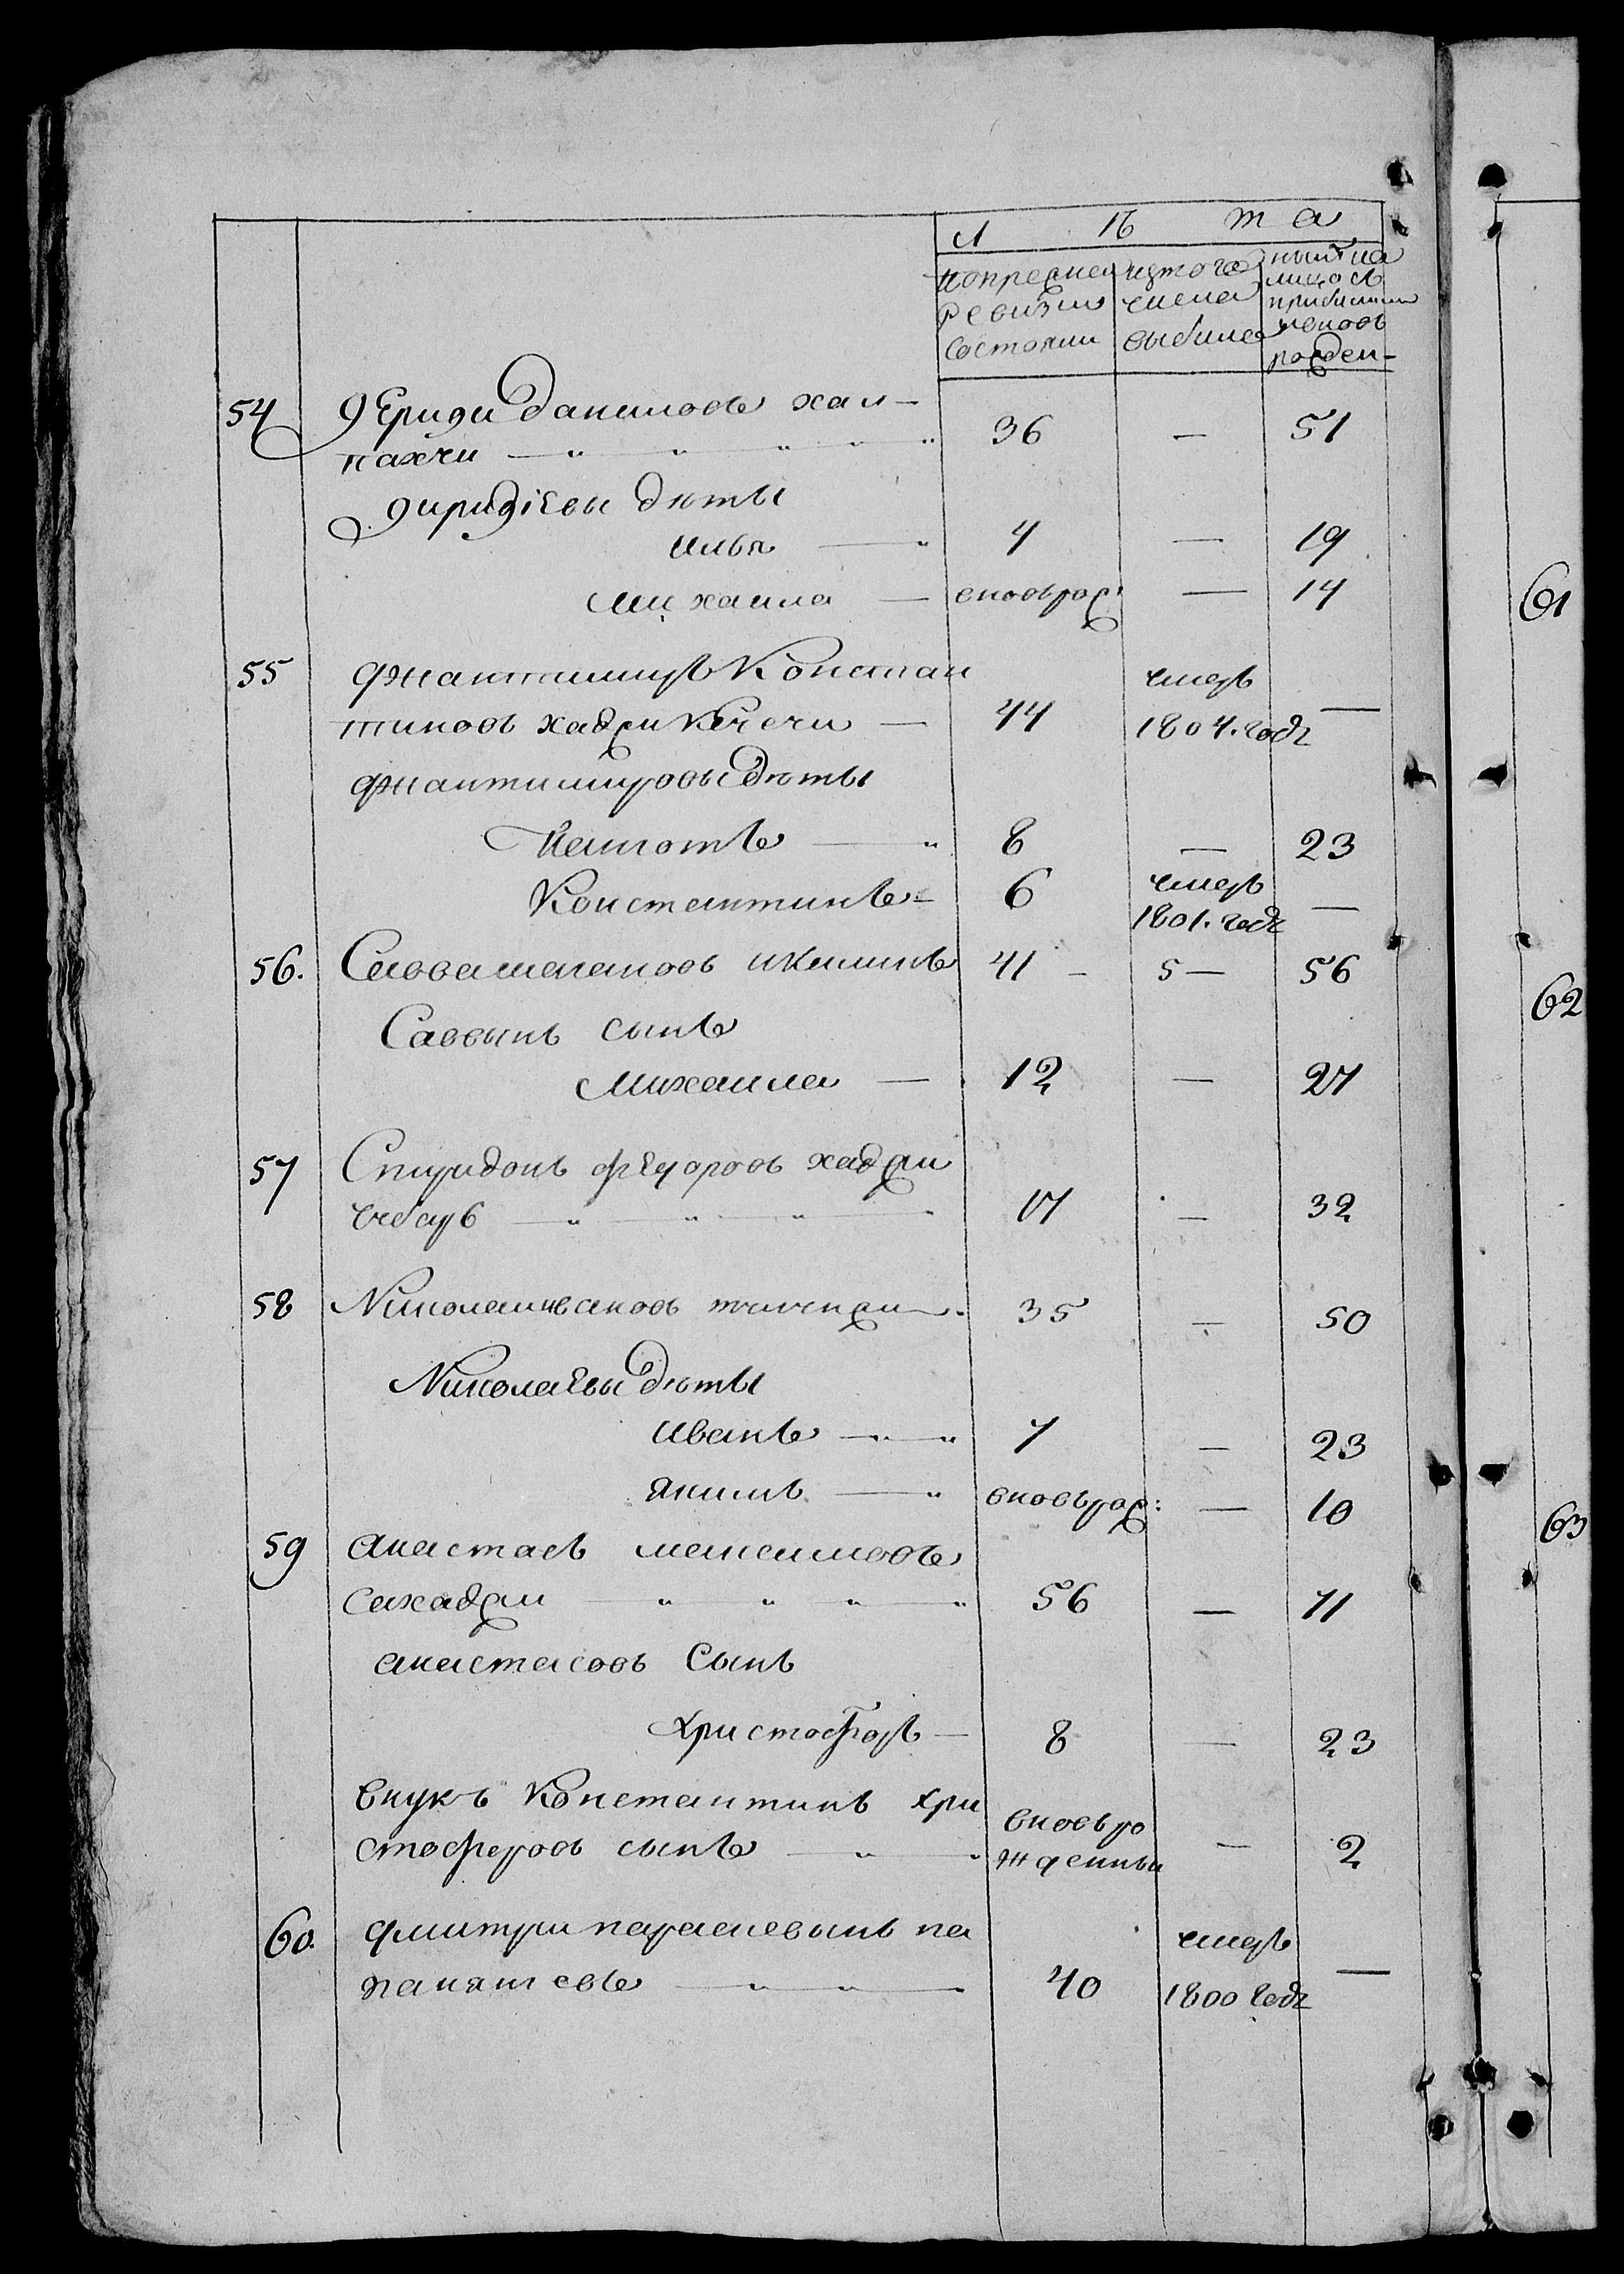 Л ѣ т а
попрежней
ревизии
состояли
изтого
числа
выбыло
ныне на
лицо съ
прибылыми
и вновь
рожден-
54 Дериди даниловъ хал- 36 — 51
пахчи
Диридіевы дѣты
илья 4 — 19
михаила вновь рож: — 14
55 Джантимиръ Констан
тиновъ хаджи Кечечи — 44 умеръ 1804. годꙋ —
джантимировы дѣты
Панготъ 8 — 23
Константинъ 6 умеръ 1801. годꙋ —
56. Савва 41 - 5 — 56
Саввынъ сынъ
Михаила — 12 — 27
57 Спиридонъ федоровъ хаджи
17 — 32
58 Николай ивановъ 35 — 50
Николаевы дѣты
иванъ 7 — 23
якимъ вновь рож: — 10
59 анастасъ максимовъ
сахаджи 56 — 71
анастасовъ Сынъ
Христофоръ — 8 — 23
внукъ Константинъ хри
стофоровъ сынъ вновь ро
жденны — 2
60. дмитри параскевынъ па
панаиевъ 40 умеръ 1800 годꙋ —
61
62
63